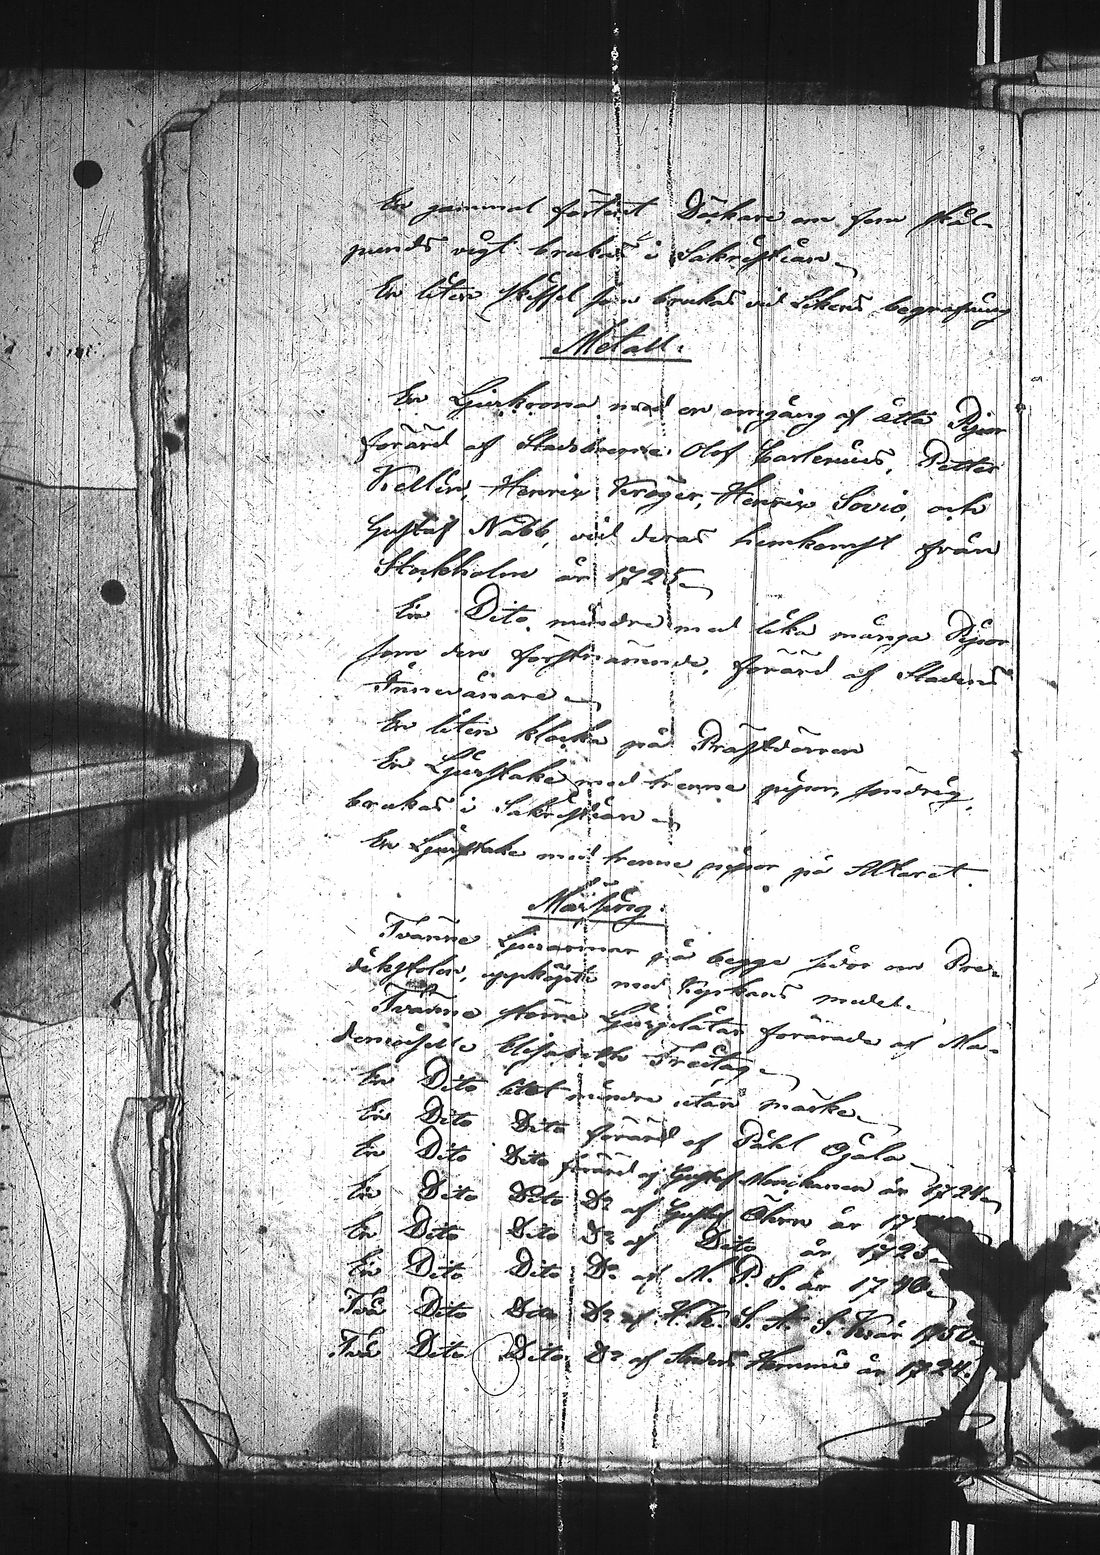 En gammal förtent Däckare om fem skål-
punds vigt brukas i Sakristian
En liten skeffel som brukas vid Likens begrafning
Metall:
En Ljuskrona med en omgång af åtta Pipor
förärd af Stadsboerne Olof Carlenius, Petter
Kellén, Henric Kröger, Henric Sovio, och
Gustaf Nabb, vid deras hemkomst från
Stockholm år 1725
En Dito, mindre med lika många Pipor
som den förstnämnde, förärd af Stadens
Innevånare
En liten klocka på Prästdörren
En Ljusstake med trenne pipor, söndrig,
brukas i Sakristian
En Ljusstake med trenne pipor på Altaret.
Mässing:
Tvänne Ljusarmar på begge sidor om Pre-
dikstolen, uppköpte med Kyrkans medel.
Tvänne större Ljusplåtar förärade af Ma-
demoiselle Elisabeth Freitag
En Dito litet mindre utan märke
En Dito Dito förärd af Påhl Ojala
En Dito Dito förärd af Gustaf år 1724
En Dito Dito D:o af Gustaf Öhrn år
En Dito Dito D:o af Dito år 1725
En Dito Dito D:o af M. P. S. år 1740
Två Dito Dito D:o af år 1750
Två Dito Dito D:o af Anders år 1724.